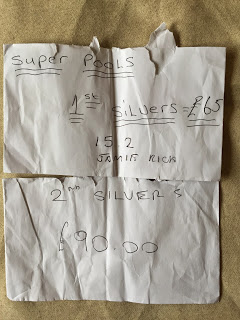 SUPER POOLS
1st SILVERS = £65
15.2
JAMIE RICK
2nd SILVER'S
£90.00